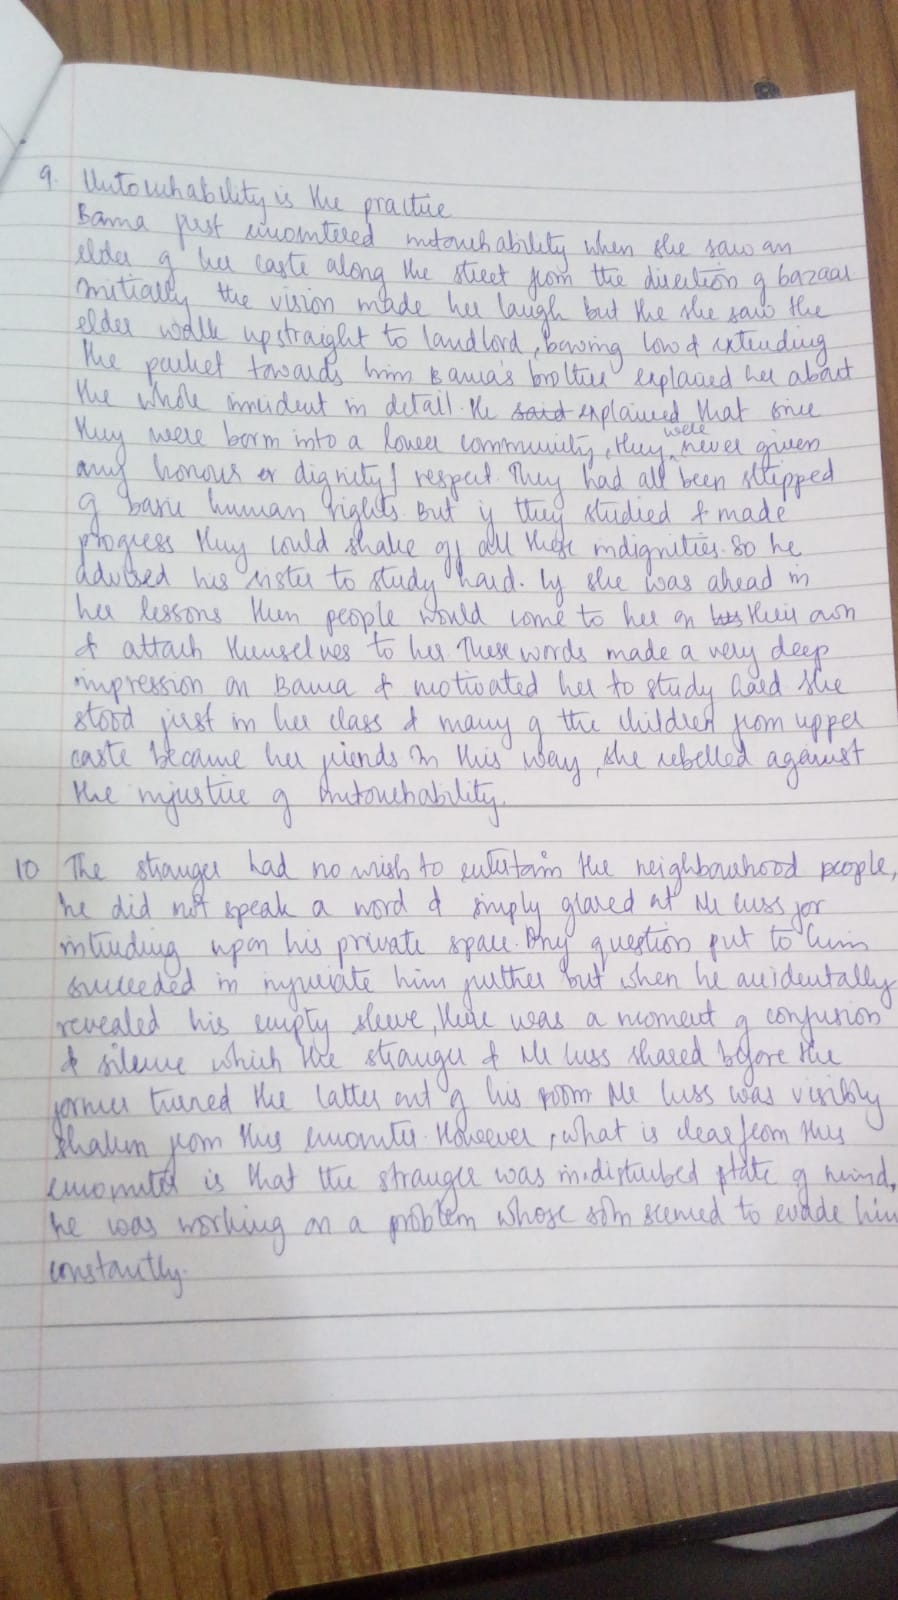 9. Untouchability is the practice
Bama first encomtered untouchability when she saw an
elder of her caste along the street from the direction of bazaar
initially the vision made her laugh but the she saw the
elder walk upstraight to landlord, bowing low & extending
the packet towards him Bama's brother explained her about
the whole incident in detail. He said explained that since
they were born into a lower community, they were never given
any honour or dignity/ respect. They had all been stripped
of basic human rights But if they studied & made
progress they could shake off all these indignities. So he
advised his sister to study hard. If she was ahead in
her lessons then people would come to her on his their own
& attach themselves to her. These words made a very deep
impression on Bama & motivated her to study hard she
stood first in her class & many of the children from upper
caste became her friends In this way, she rebelled against
the injustice of untouchability.
10 The stranger had no wish to entertain the neighbourhood people,
he did not speak a word & simply glared at Mr Cuss for
intruding upon his private space. Any question put to him
succeeded in him further but when he accidentally
revealed his empty sleeve, there was a moment of confusion
& silence which the stranger & Mr Cuss shared before the
former turned the latter out of his room Mr Cuss was visibly
shaken from this encounter. However, what is clear from this
encounter is that the stranger was in disturbed state of mind,
he was working on a problem whose soln seemed to evade him
constantly.